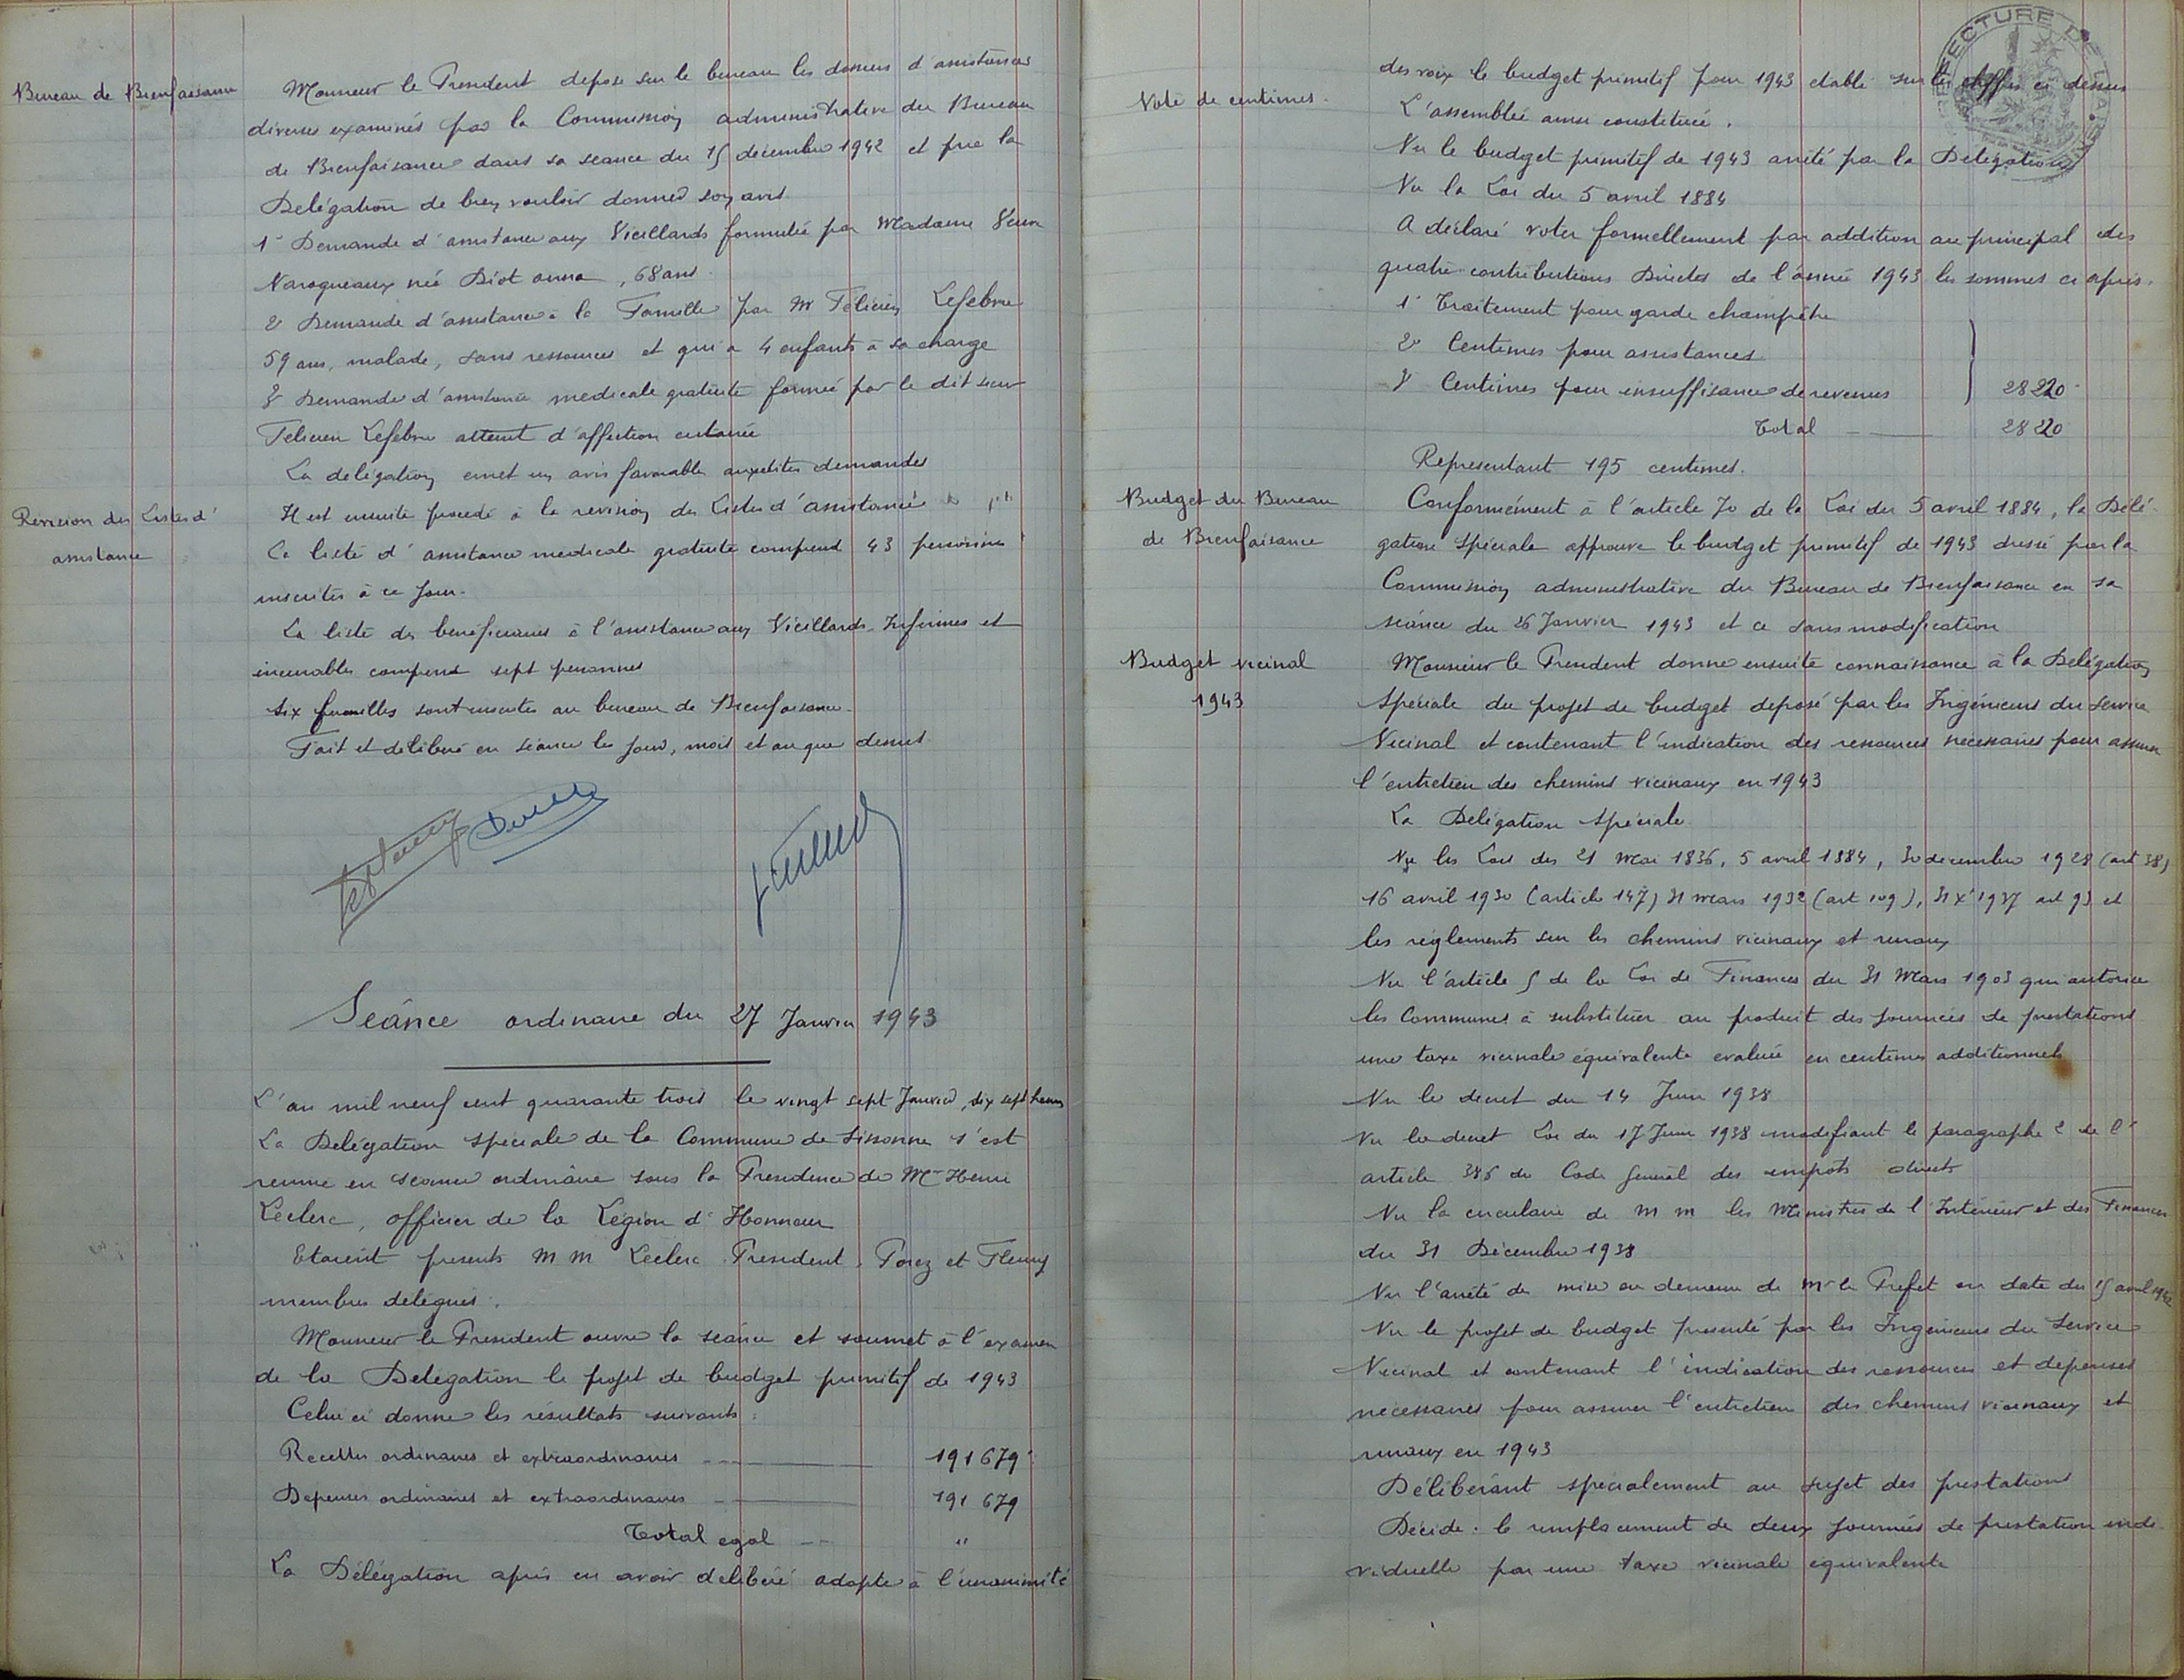 Bureau de Bienfaisance
Monsieur le President depose sur le bureau les dossiers d'assistances
diverses examinés par la Commission administrative du Bureau
de Bienfaisance dans sa seance du 15 decembre 1942 et prie la
Delégation de bien vouloir donner son avis.
1° Demande d'assistance aux Vieillards formulée par Madame Veuve
Naroqueaux née Diot anna, 68 ans.
2° Demande d'assistance à la Famille par Mr Félicien Lefebvre
59 ans, malade, sans ressources et qui a 4 enfants à sa charge
3° Demande d'assistance medicale gratuite formée par le dit sieur
Félicien Lefebvre atteint d'affection cutanée
La delégation emet un avis favorable auxdites demandes
Revision des Listes d'
assistance
Il est ensuite procedé à la revision des Listes d'assistance
La liste d'assistance medicale gratuite comprend 43 personnes
inscrites à ce jour.
La liste des beneficiaires à l'assistance aux Vieillards Infirmes et
incurables comprend sept personnes
Six familles sont inscrites au bureau de Bienfaisance.
Fait et delibéré en séance les jour, mois et an que dessus
Séance ordinaire du 27 Janvier 1943
L'an mil neuf cent quarante trois le vingt sept Janvier, dix sept heures
La Delégation spéciale de la Commune de Sissonne s'est
reunie en seance ordinaire sous la Presidence de Mr Henri
Leclerc, officier de la Légion d'Honneur
Etaient presents M M Leclerc President, Porez et Fleury
membres delegués.
Monsieur le President ouvre la séance et soumet à l'examen
de la Delegation le projet de budget primitif de 1943
Celui ci donne les résultats suivants :
Recettes ordinaires et extraordinaires 191 679
Depenses ordinaires et extraordinaires 191 679
Total egal "
La Délégation après en avoir delibéré adopte à l'unanimité
des voix le budget primitif pour 1943 etabli sur les chiffres ci dessus
Vote de centimes.
L'assemblée ainsi constituée.
Vu le budget primitif de 1943 arrêté par la Delégation
Vu la Loi du 5 avril 1884
A déclaré voter formellement par addition au principal des
quatre contributions Directes de l'année 1943 les sommes ci après.
1° Traitement pour garde champêtre
2° Centimes pour assistances
3° Centimes pour insuffisance de revenus 28220
Total 28220
Representant 195 centimes.
Budget du Bureau
de Bienfaisance
Conformément à l'article 70 de la Loi du 5 avril 1884, la Délé-
gation spéciale approuve le budget primitif de 1943 dressé par la
Commission administrative du Bureau de Bienfaisance en sa
séance du 26 Janvier 1943 et ce sans modification
Budget vicinal
1943
Monsieur le President donne ensuite connaissance à la Delégation
Spéciale du projet de budget deposé par les Ingénieurs du Service
Vicinal et contenant l'indication des ressources necessaires pour assurer
l'entretien des chemins vicinaux en 1943
La Delégation Spéciale
Vu les Lois des 21 Mai 1836, 5 avril 1884, 30 decembre 1928 (art 38)
16 avril 1930 (article 147) 31 mars 1932 (art 109), 31 Xe 1937 art 93 et
les réglements sur les chemins vicinaux et ruraux
Vu l'article 5 de la Loi de Finances du 31 Mars 1903 qui autorise
les Communes à substituer au produit des journées de prestations
une taxe vicinale équivalente evaluée en centimes additionnels
Vu le decret du 14 Juin 1938
Vu le decret Loi du 17 Juin 1938 modifiant le paragraphe 2 de l'
article 386 du Code General des impots directs
Vu la circulaire de M M les Ministres de l'Intérieur et des Finances
du 31 Décembre 1938
Vu l'arrêté de mise en demeure de Mr le Prefet en date du 15 avril 1942
Vu le projet de budget presenté par les Ingénieurs du Service
Vicinal et contenant l'indication des ressources et depenses
necessaires pour assurer l'entretien des chemins vicinaux et
ruraux en 1943
Délibérant spécialement au sujet des prestations
Décide : le remplacement de deux journées de prestation indi-
viduelle par une taxe vicinale équivalente